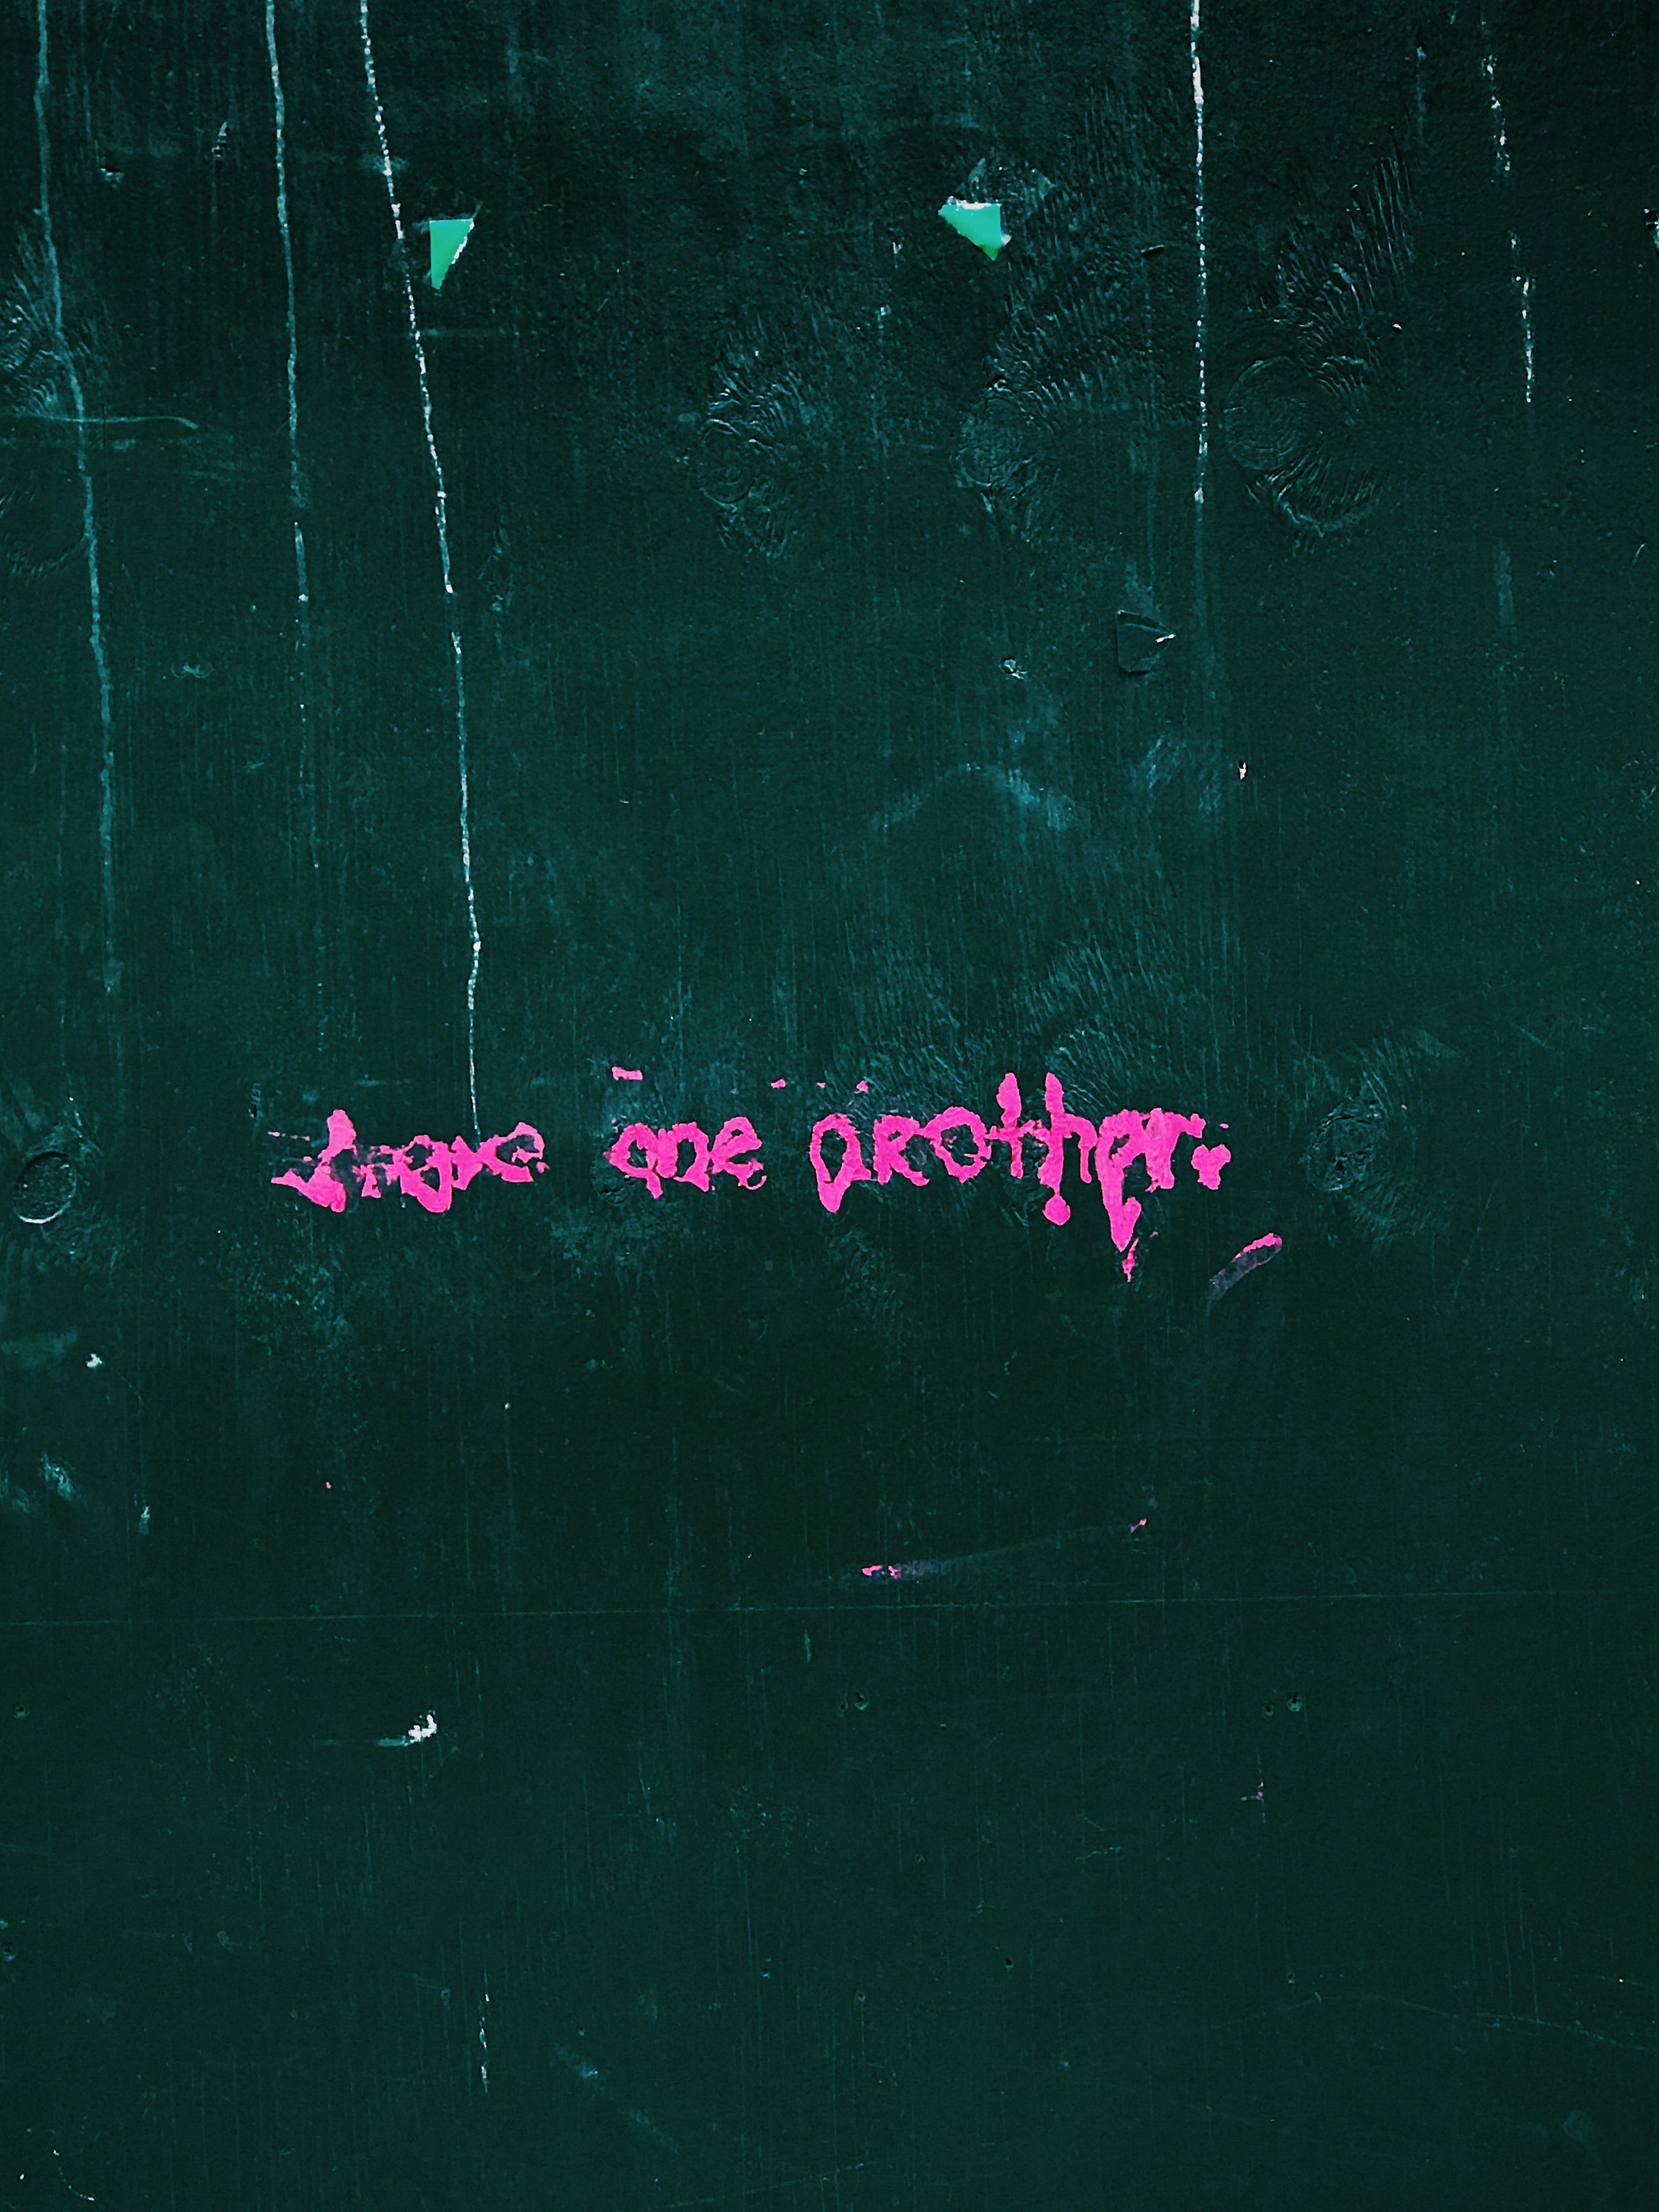 love one another.